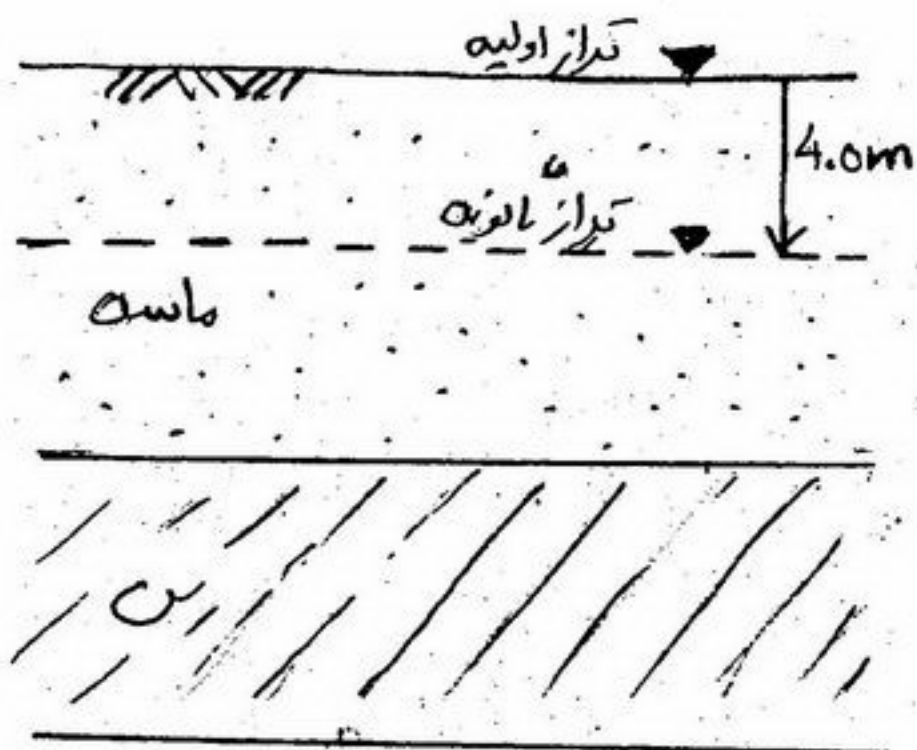 تراز اولیه
4.0m
تراز ثانویه
ماسه
رس